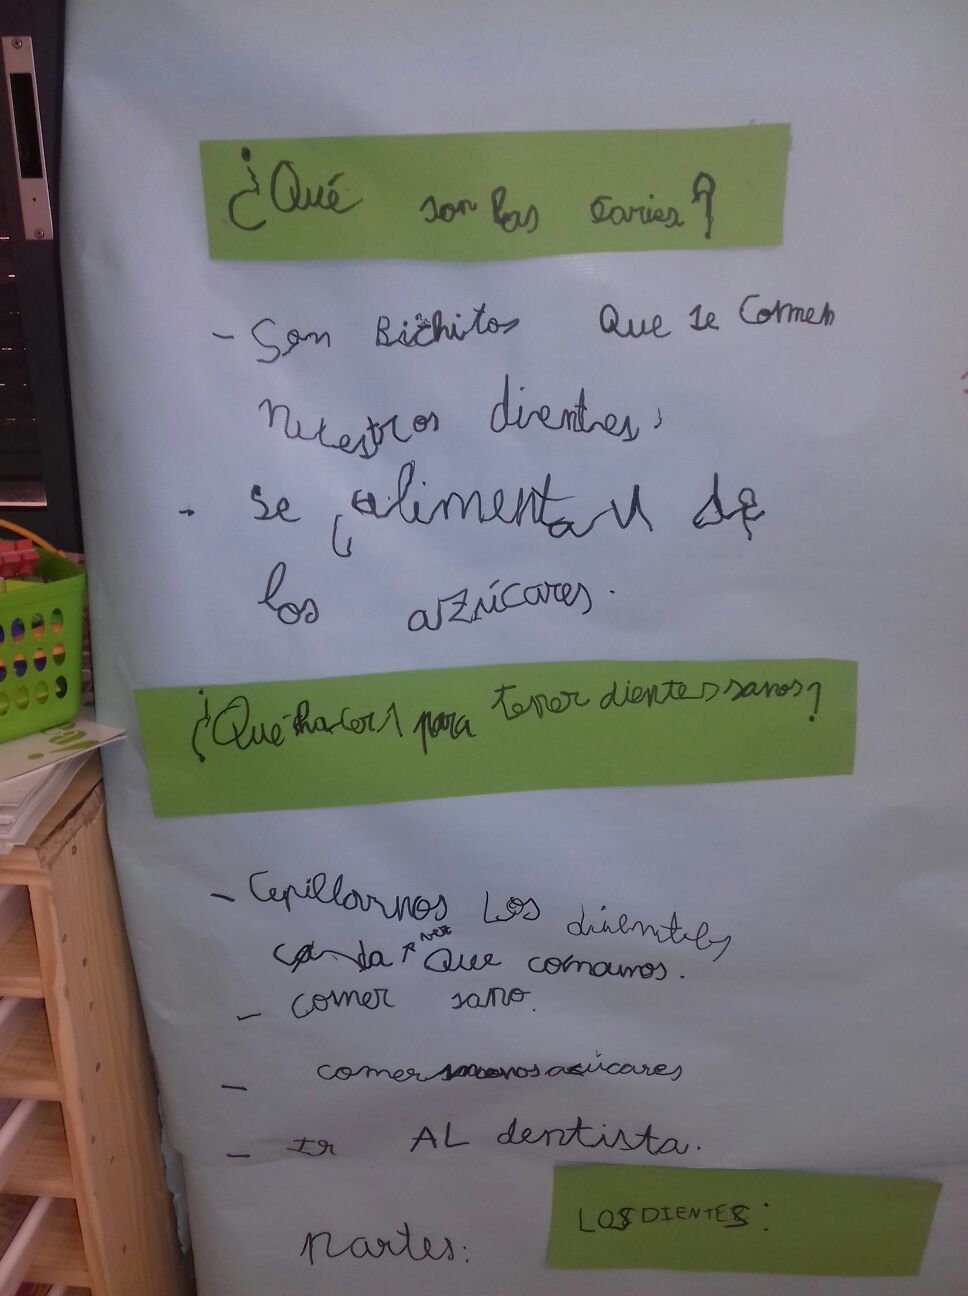 ¿Qué son las caries?
- Son Bichitos que se comen
nuestros dientes.
- se alimentan de
los azúcares.
¿Qué hacer para tener dientes sanos?
- Cepillarnos Los dientes
vez
cada que comamos.
- comer sano.
- comer menos azúcares
- Ir AL dentista.
LOS DIENTES:
Partes: